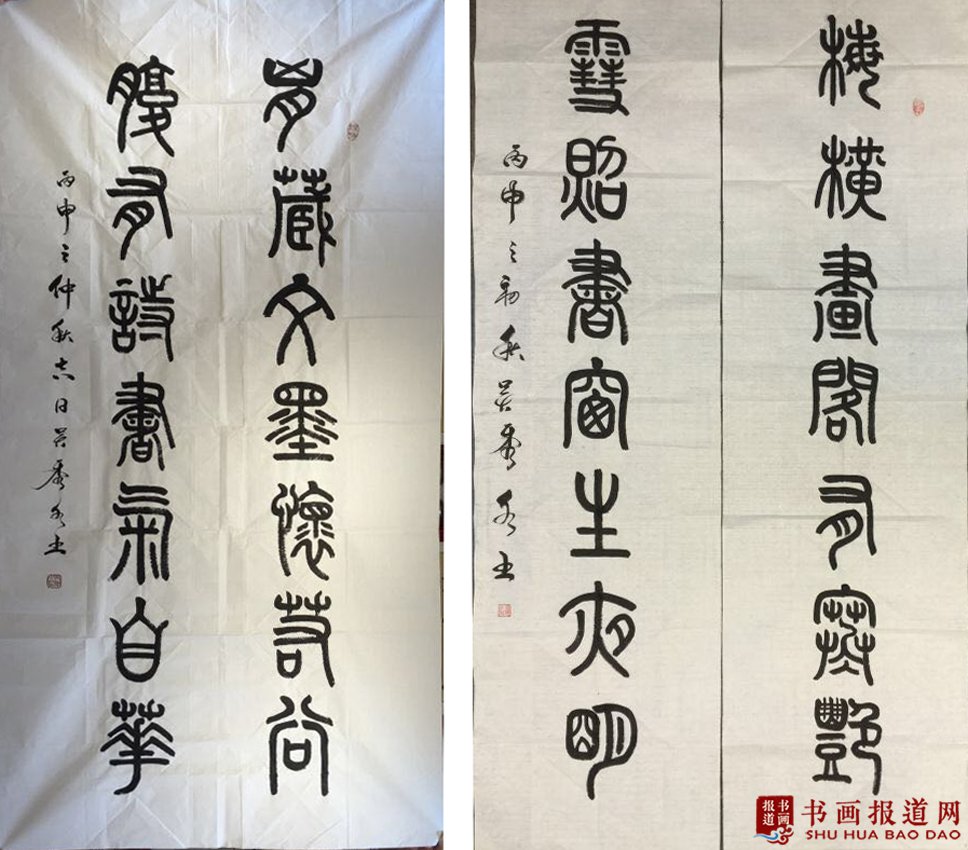 胸藏文墨懷若谷
腹有詩書氣自華
丙申之仲秋吉日吴秀书
梅橫畫閣有寒豔
雪照書窗生夜明
丙申之初秋吴秀书
书画报道
书画报道网
SHU HUA BAO DAO